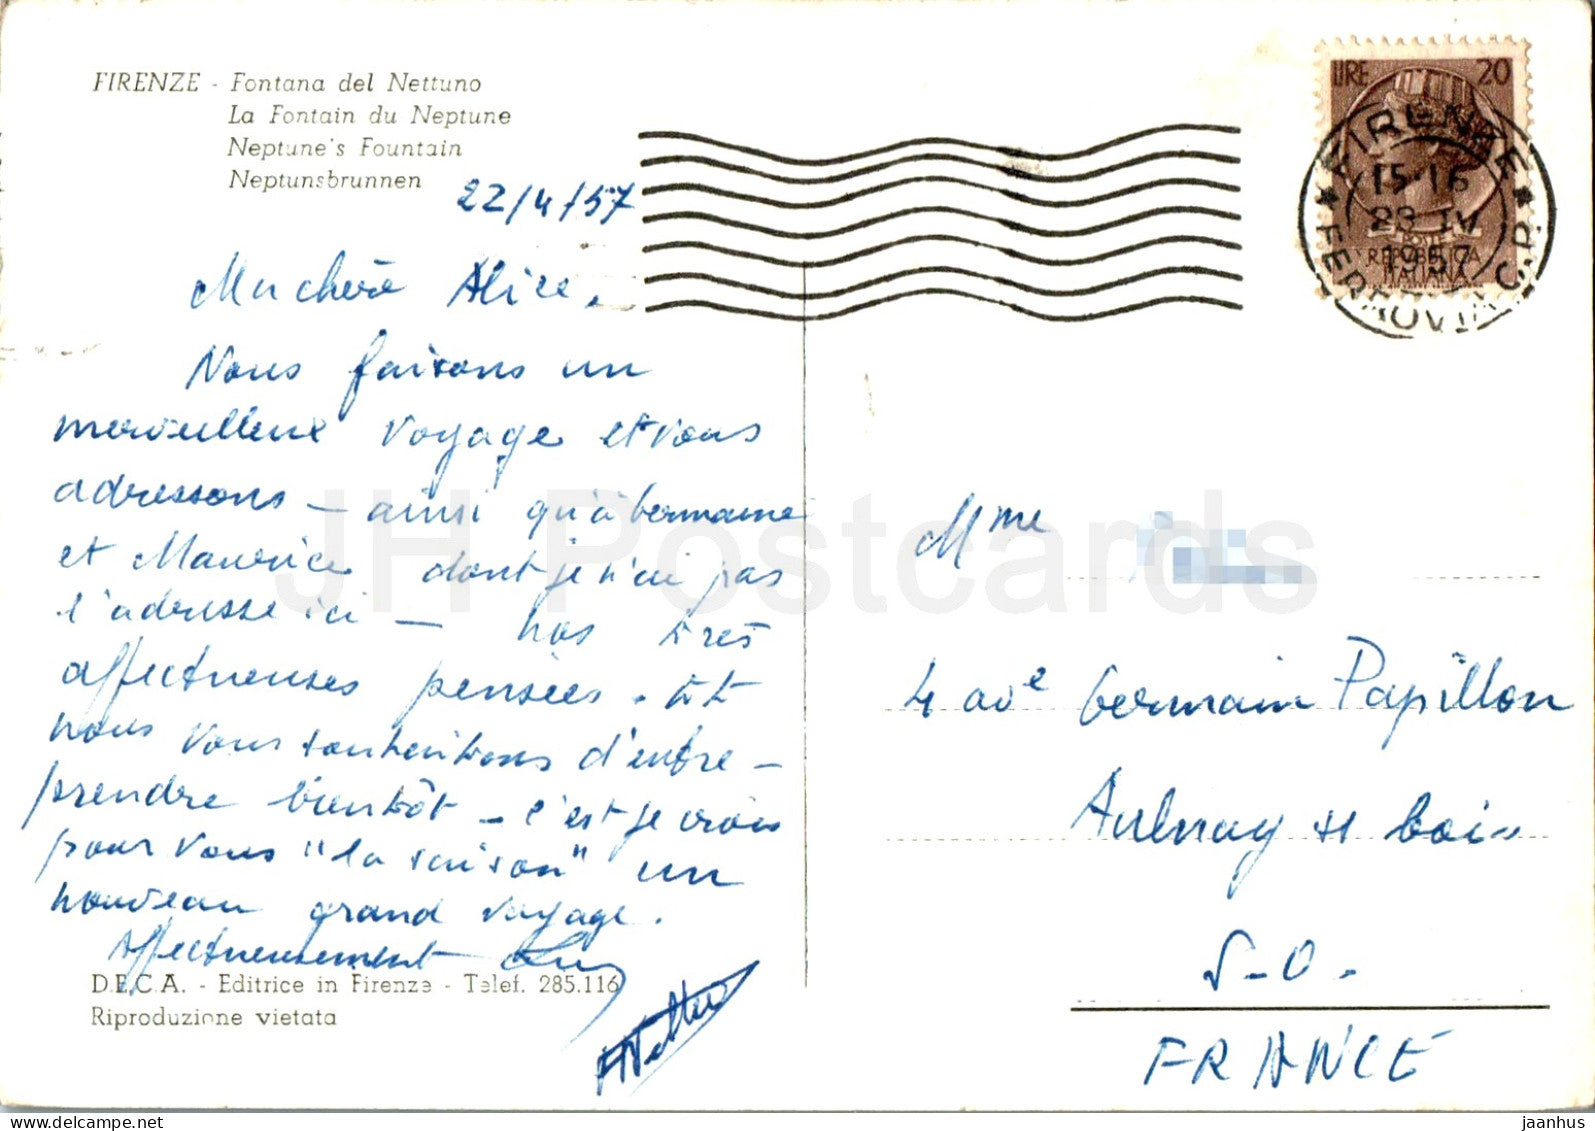 FIRENZE - Fontana del Nettuno
La Fontain du Neptune
Neptune's Fountain
Neptunsbrunnen
22/4/57
Ma chère Alice.
Nous faisons un
merveilleux voyage et vous
adressons - ainsi qu'à Germaine
et Maurice dont je n'ai pas
l'adresse ici - nos très
affectueuses pensées. Et
nous vous souhaitons d'entre-
prendre bientôt - c'est je crois
pour vous "la saison" un
nouveau grand voyage.
Affectueusement
D.E.C.A. - Editrice in Firenze - Telef. 285.116
Riproduzione vietata
LIRE 20
REPUBBLICA
ITALIANA
FIRENZE
15-16
23 IV
1957
FERROVIA C.P.
Mme
4 ave Germain Papillon
Aulnay s/s bois
S-O.
FRANCE
JH Postcards
delcampe.net
jaanhus